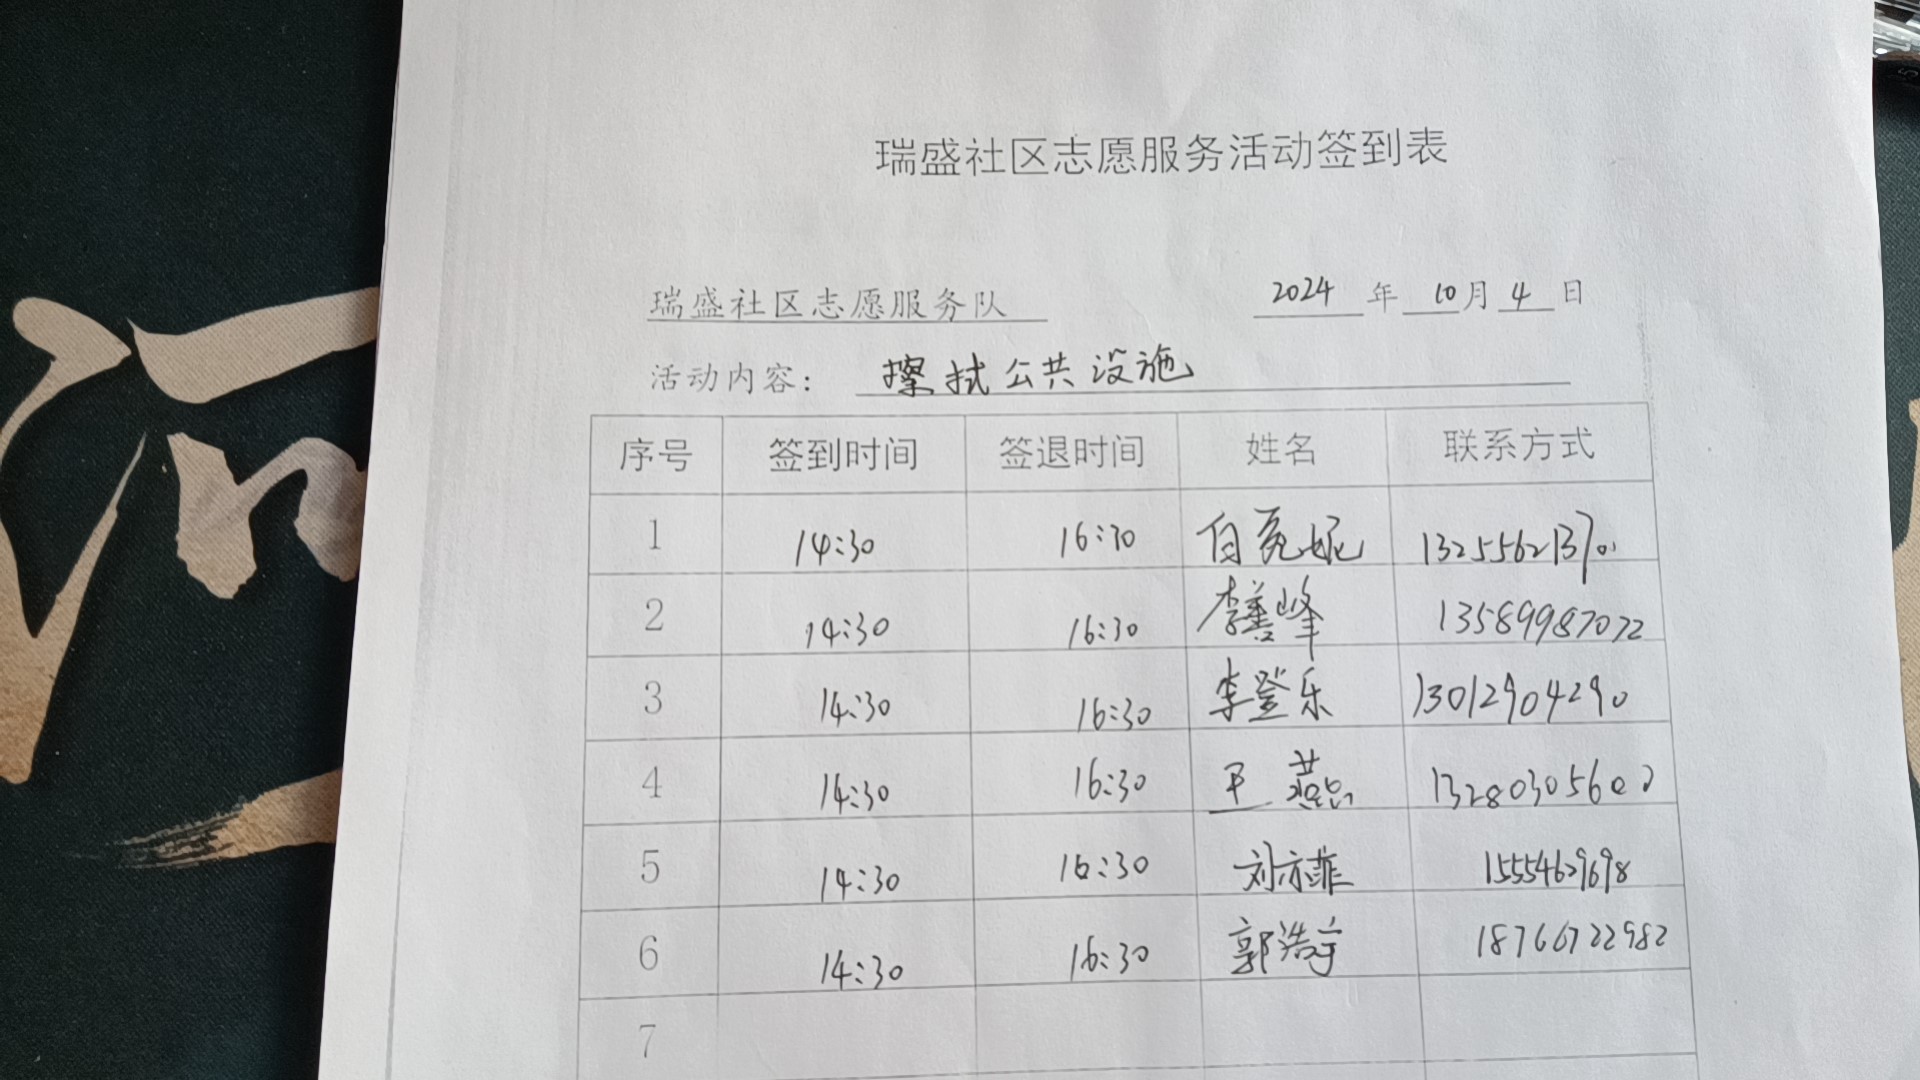 瑞盛社区志愿服务活动签到表
瑞盛社区志愿服务队 2024 年 10 月 4 日
活动内容: 擦拭公共设施
序号 签到时间 签退时间 姓名 联系方式
1 14:30 16:30 白 妮
2 14:30 16:30 李善峰 13589987072
3 14:30 16:30 李登乐 13012904290
4 14:30 16:30 王燕
5 14:30 16:30 刘亦菲 15554629698
6 14:30 16:30 郭浩宇 18766722982
7